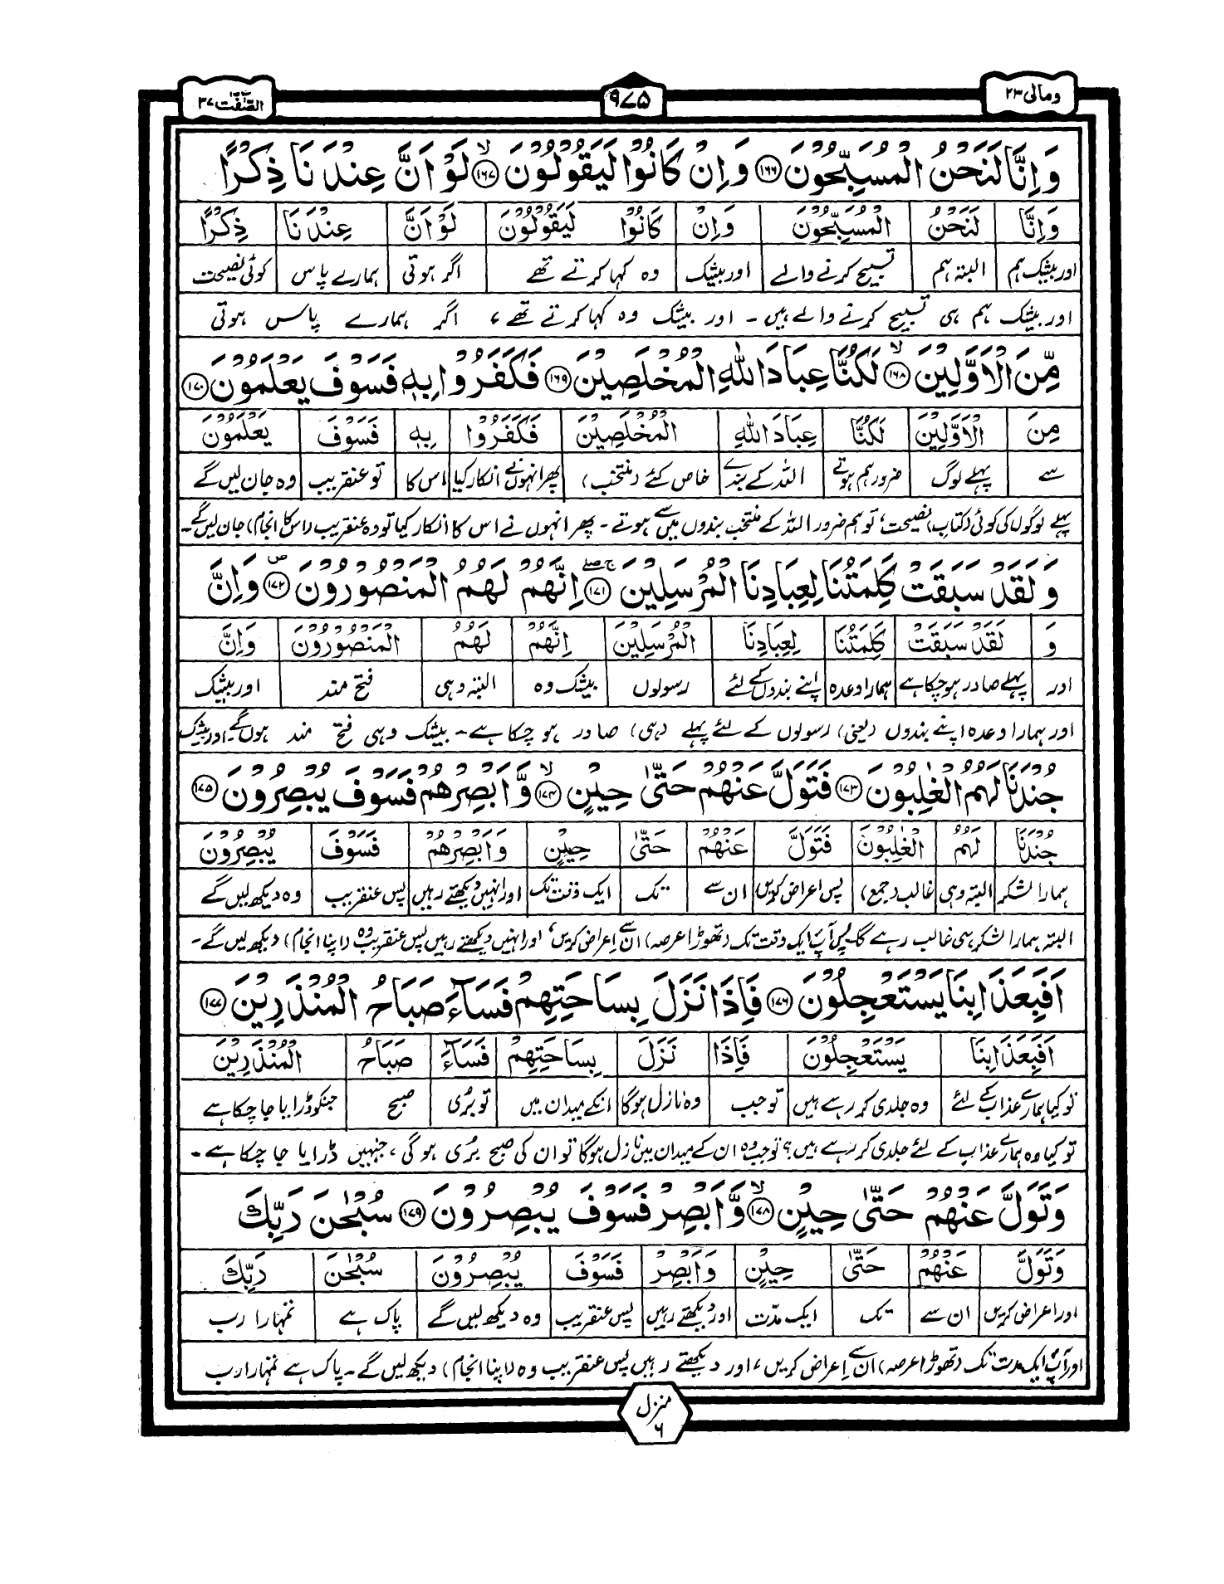 ومالی ۲۳
۹۷۵
الصّٰفّٰت ۳۷
وَاِنَّا لَنَحْنُ الْمُسَبِّحُوْنَ ﴿۱۶۶﴾ وَاِنْ كَانُوْا لَيَقُوْلُوْنَ ﴿۱۶۷﴾ لَوْ اَنَّ عِنْدَنَا ذِكْرًا
وَاِنَّا لَنَحْنُ الْمُسَبِّحُوْنَ وَاِنْ كَانُوْا لَيَقُوْلُوْنَ لَوْ اَنَّ عِنْدَنَا ذِكْرًا
اور بیشک ہم البتہ ہم تسبیح کرنے والے اور بیشک وہ کہا کرتے تھے اگر ہوتی ہمارے پاس کوئی نصیحت
اور بیشک ہم ہی تسبیح کرنے والے ہیں۔ اور بیشک وہ کہا کرتے تھے، اگر ہمارے پاس ہوتی
مِّنَ الْاَوَّلِيْنَ ﴿۱۶۸﴾ لَكُنَّا عِبَادَ اللّٰهِ الْمُخْلَصِيْنَ ﴿۱۶۹﴾ فَكَفَرُوْا بِهٖ فَسَوْفَ يَعْلَمُوْنَ ﴿۱۷۰﴾
مِنَ الْاَوَّلِيْنَ لَكُنَّا عِبَادَ اللّٰهِ الْمُخْلَصِيْنَ فَكَفَرُوْا بِهٖ فَسَوْفَ يَعْلَمُوْنَ
سے پہلے لوگ ضرور ہم ہوتے اللہ کے بندے خاص کئے (منتخب) پھر انہوں نے انکار کیا اس کا تو عنقریب وہ جان لیں گے
پہلے لوگوں کی کوئی (کتاب) نصیحت، تو ہم ضرور اللہ کے منتخب بندوں میں سے ہوتے۔ پھر انہوں نے اس کا انکار کیا تو وہ عنقریب (اس کا انجام) جان لیں گے۔
وَلَقَدْ سَبَقَتْ كَلِمَتُنَا لِعِبَادِنَا الْمُرْسَلِيْنَ ﴿۱۷۱﴾ اِنَّهُمْ لَهُمُ الْمَنْصُوْرُوْنَ ﴿۱۷۲﴾ وَاِنَّ
وَ لَقَدْ سَبَقَتْ كَلِمَتُنَا لِعِبَادِنَا الْمُرْسَلِيْنَ اِنَّهُمْ لَهُمُ الْمَنْصُوْرُوْنَ وَاِنَّ
اور پہلے صادر ہو چکا ہے ہمارا وعدہ اپنے بندوں کے لئے رسولوں بیشک وہ البتہ وہی فتح مند اور بیشک
اور ہمارا وعدہ اپنے بندوں (یعنی) رسولوں کے لئے پہلے (ہی) صادر ہو چکا ہے۔ بیشک وہی فتح مند ہوں گے۔ اور بیشک
جُنْدَنَا لَهُمُ الْغٰلِبُوْنَ ﴿۱۷۳﴾ فَتَوَلَّ عَنْهُمْ حَتّٰى حِيْنٍ ﴿۱۷۴﴾ وَّاَبْصِرْهُمْ فَسَوْفَ يُبْصِرُوْنَ ﴿۱۷۵﴾
جُنْدَنَا لَهُمُ الْغٰلِبُوْنَ فَتَوَلَّ عَنْهُمْ حَتّٰى حِيْنٍ وَاَبْصِرْهُمْ فَسَوْفَ يُبْصِرُوْنَ
ہمارا لشکر البتہ وہی غالب (جمع) پس اعراض کریں ان سے تک ایک وقت تک اور انہیں دیکھتے رہیں پس عنقریب وہ دیکھ لیں گے
البتہ ہمارا لشکر ہی غالب رہے گا۔ پس آپ ایک وقت تک (تھوڑا عرصہ) ان سے اعراض کریں، اور انہیں دیکھتے رہیں پس عنقریب وہ (اپنا انجام) دیکھ لیں گے۔
اَفَبِعَذَابِنَا يَسْتَعْجِلُوْنَ ﴿۱۷۶﴾ فَاِذَا نَزَلَ بِسَاحَتِهِمْ فَسَآءَ صَبَاحُ الْمُنْذَرِيْنَ ﴿۱۷۷﴾
اَفَبِعَذَابِنَا يَسْتَعْجِلُوْنَ فَاِذَا نَزَلَ بِسَاحَتِهِمْ فَسَآءَ صَبَاحُ الْمُنْذَرِيْنَ
تو کیا ہمارے عذاب کے لئے وہ جلدی کر رہے ہیں تو جب وہ نازل ہوگا انکے میدان میں تو بُری صبح جنکو ڈرایا جا چکا ہے
تو کیا وہ ہمارے عذاب کے لئے جلدی کر رہے ہیں؟ تو جب وہ ان کے میدان میں نازل ہوگا تو ان کی صبح بُری ہو گی، جنہیں ڈرایا جا چکا ہے۔
وَتَوَلَّ عَنْهُمْ حَتّٰى حِيْنٍ ﴿۱۷۸﴾ وَّاَبْصِرْ فَسَوْفَ يُبْصِرُوْنَ ﴿۱۷۹﴾ سُبْحٰنَ رَبِّكَ
وَتَوَلَّ عَنْهُمْ حَتّٰى حِيْنٍ وَاَبْصِرْ فَسَوْفَ يُبْصِرُوْنَ سُبْحٰنَ رَبِّكَ
اور اعراض کریں ان سے تک ایک مدت اور دیکھتے رہیں پس عنقریب وہ دیکھ لیں گے پاک ہے تمہارا رب
اور آپ ایک مدت تک (تھوڑا عرصہ) ان سے اعراض کریں، اور دیکھتے رہیں پس عنقریب وہ (اپنا انجام) دیکھ لیں گے۔ پاک ہے تمہارا رب
منزل
۶